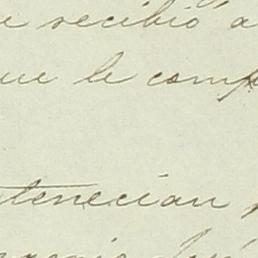 recibió a
ue le comp
tenecian